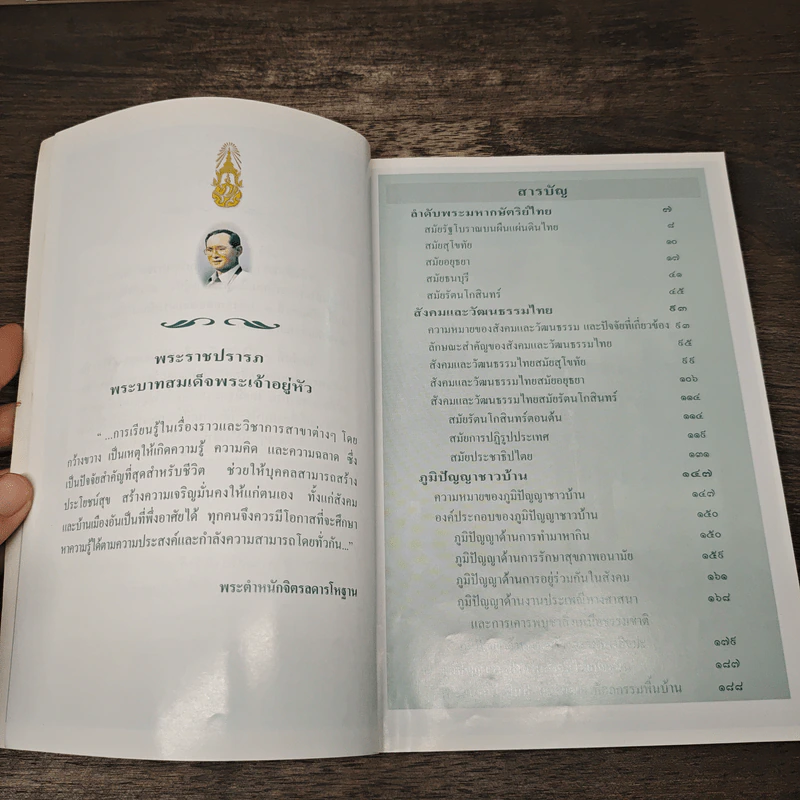 พระราชปรารภ
พระบาทสมเด็จพระเจ้าอยู่หัว
“ ...การเรียนรู้ในเรื่องราวและวิชาการสาขาต่างๆ โดย
กว้างขวาง เป็นเหตุให้เกิดความรู้ ความคิด และความฉลาด ซึ่ง
เป็นปัจจัยสำคัญที่สุดสำหรับชีวิต ช่วยให้บุคคลสามารถสร้าง
ประโยชน์สุข สร้างความเจริญมั่นคงให้แก่ตนเอง ทั้งแก่สังคม
และบ้านเมืองอันเป็นที่พึ่งอาศัยได้ ทุกคนจึงควรมีโอกาสที่จะศึกษา
หาความรู้ได้ตามความประสงค์และกำลังความสามารถโดยทั่วกัน...”
พระตำหนักจิตรลดารโหฐาน
สารบัญ
ลำดับพระมหากษัตริย์ไทย ๗
สมัยรัฐโบราณบนผืนแผ่นดินไทย ๘
สมัยสุโขทัย ๑๐
สมัยอยุธยา ๑๗
สมัยธนบุรี ๔๑
สมัยรัตนโกสินทร์ ๔๕
สังคมและวัฒนธรรมไทย ๙๓
ความหมายของสังคมและวัฒนธรรม และปัจจัยที่เกี่ยวข้อง ๙๓
ลักษณะสำคัญของสังคมและวัฒนธรรมไทย ๙๕
สังคมและวัฒนธรรมไทยสมัยสุโขทัย ๙๙
สังคมและวัฒนธรรมไทยสมัยอยุธยา ๑๐๖
สังคมและวัฒนธรรมไทยสมัยรัตนโกสินทร์ ๑๑๔
สมัยรัตนโกสินทร์ตอนต้น ๑๑๔
สมัยการปฏิรูปประเทศ ๑๑๙
สมัยประชาธิปไตย ๑๓๑
ภูมิปัญญาชาวบ้าน ๑๔๗
ความหมายของภูมิปัญญาชาวบ้าน ๑๔๗
องค์ประกอบของภูมิปัญญาชาวบ้าน ๑๕๐
ภูมิปัญญาด้านการทำมาหากิน ๑๕๐
ภูมิปัญญาด้านการรักษาสุขภาพอนามัย ๑๕๙
ภูมิปัญญาด้านการอยู่ร่วมกันในสังคม ๑๖๑
ภูมิปัญญาด้านงานประเพณีทางศาสนา ๑๖๘
และการเคารพบูชาสิ่งเหนือธรรมชาติ
๑๗๙
๑๘๗
พื้นบ้าน ๑๘๘